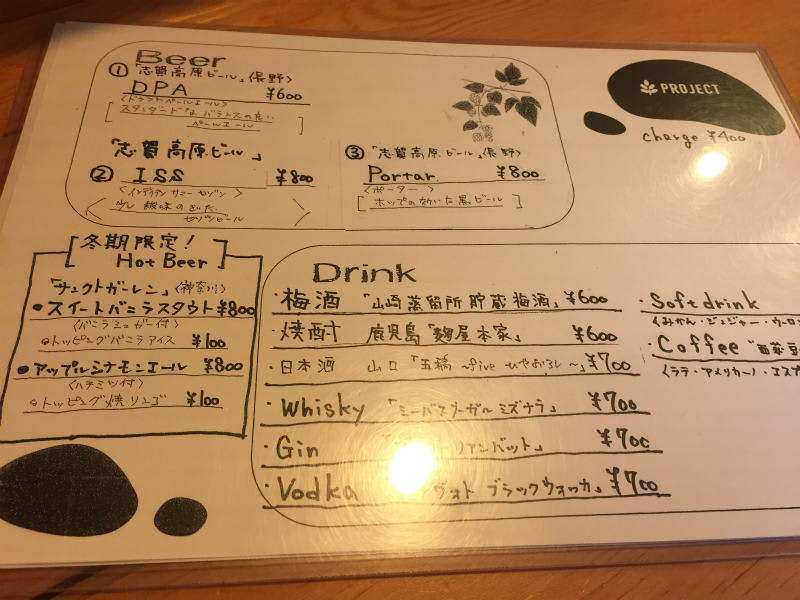 Beer
① 「志賀高原ビール」〈長野〉
DPA ¥600
〈ドラフトペールエール〉
スタンダードな バランスの良い
ペールエール
「志賀高原ビール」
② ISS ¥800
〈インディアン サマー セゾン〉
少し 酸味のきいた
セゾンビール
③ 「志賀高原ビール」〈長野〉
Portar ¥800
〈ポーター〉
ホップの効いた黒ビール
PROJECT
charge ¥400
冬期限定!
Hot Beer
「サンクトガーレン」〈神奈川〉
•スイートバニラスタウト ¥800
〈バニラシュガー付〉
トッピングバニラアイス ¥100
•アップルシナモンエール ¥800
〈ハチミツ付〉
トッピング焼リンゴ ¥100
Drink
・梅酒 「山崎蒸留所貯蔵梅酒」 ¥600
・焼酎 鹿児島「麹屋本家」 ¥600
・日本酒 山口「五橋 ~five ひやおろし~」 ¥700
・Whisky 「ミーバスブーガル ミズナラ」 ¥700
・Gin アンバット」 ¥700
・Vodka ヴォト ブラックウォッカ」 ¥700
・Soft drink
〈みかん・ジンジャー・ウーロン
・Coffee
〈ラテ・アメリカーノ・エスプ